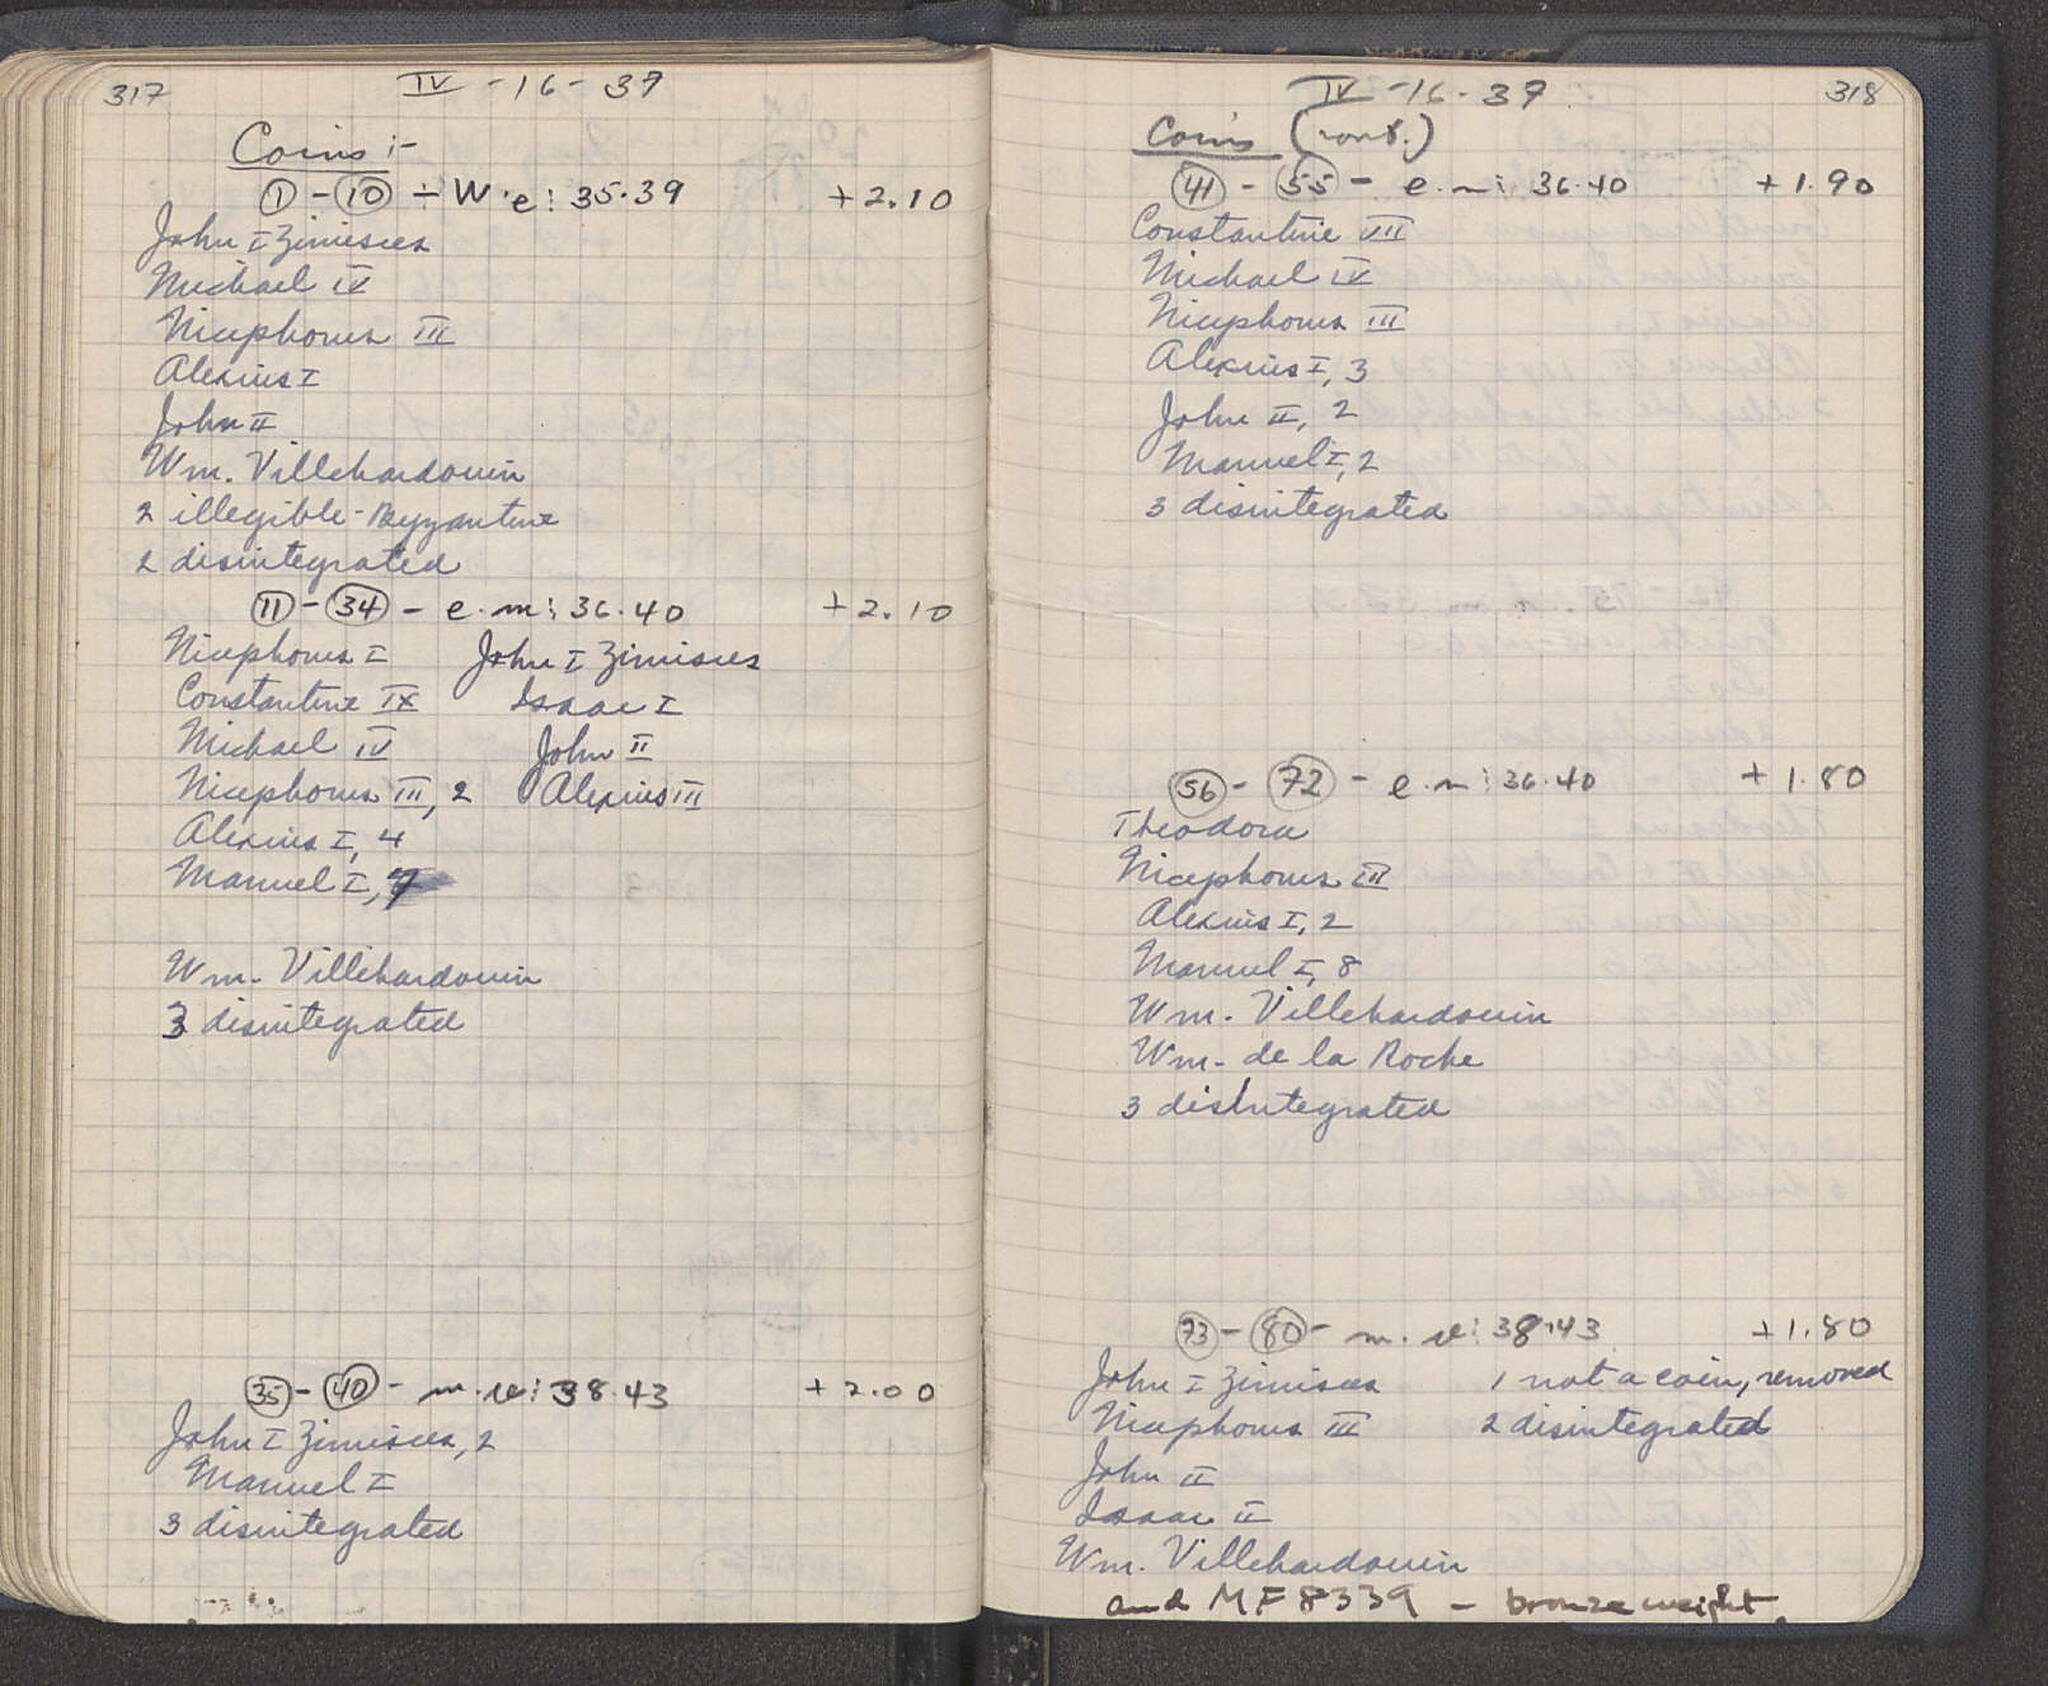 317
IV - 16 - 37
Coins :-
1 - 10 - W.e: 35.39 +2.10
John I Zimisces
Michael IV
Nicephorus III
Alexius I
John II
Wm. Villehardouin
2 illegible - Byzantine
2 disintegrated
11 - 34 - e.m: 36.40 +2.10
Nicephorus I John I Zimisces
Constantine IX Isaac I
Michael IV John II
Nicephorus III, 2 Alexius III
Alexius I, 4
Manuel I, 7
Wm. Villehardouin
3 disintegrated
35 - 40 - m.v: 38.43 +2.00
John I Zimisces, 2
Manuel I
3 disintegrated
IV - 16 - 37
318
Coins (cont.)
41 - 55 - e.m: 36.40 +1.90
Constantine VII
Michael IV
Nicephorus III
Alexius I, 3
John II, 2
Manuel I, 2
3 disintegrated
56 - 72 - e.m: 36.40 +1.80
Theodora
Nicephorus III
Alexius I, 2
Manuel I, 8
Wm. Villehardouin
Wm. de la Roche
3 disintegrated
73 - 80 - m.v: 38.43 +1.80
John I Zimisces 1 not a coin, removed
Nicephorus III 2 disintegrated
John II
Isaac II
Wm. Villehardouin
and MF 8339 - bronze weight.